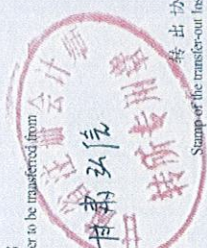 er to be transferred from
注册会计
甘肃弘信
转所专用章
转出协
Stamp of the transfer-out Ins